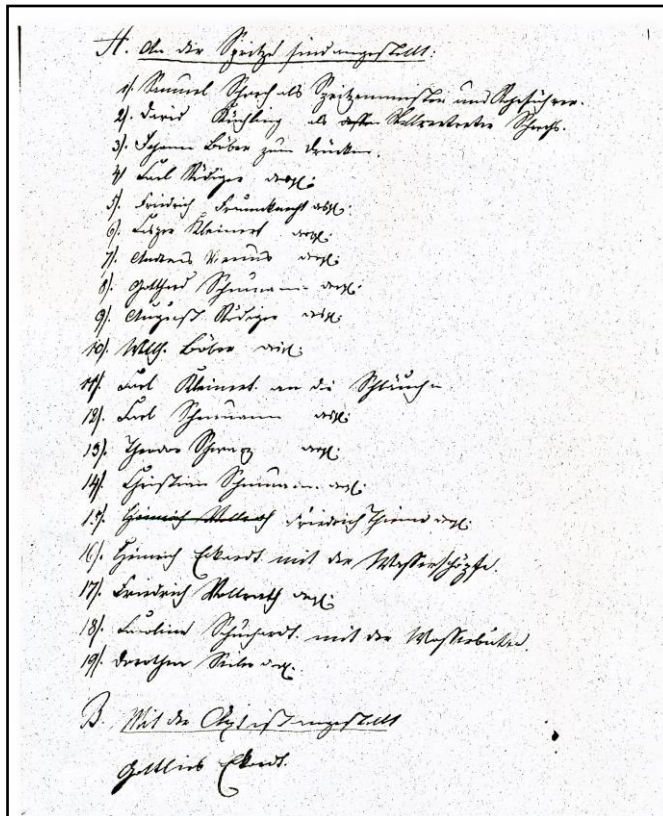 A. An der Spritze sind angestellt:
1). Samuel Schoch als Spritzenmeister und Rohrführer.
2). David Küchling als dessen Stellvertreter Schochs.
3). Johann Böber zum Drücken.
4) Karl Rüdiger desgl:
5). Friedrich Frumknecht desgl:
6). Kleinert desgl:
7). Andreas desgl:
8). Gotthard Schumann desgl:
9). August Rüdiger desgl:
10). Wilh. Böber desgl:
11). Karl Kleinert an die Schläuche
12). Karl Schumann desgl:
13). Theodor desgl:
14). Christian Schumann desgl:
15). Heinrich Vollrath Friedrich Thieme desgl:
16). Heinrich Eckardt mit der Wasserschöpfe.
17). Friedrich Vollrath desgl:
18). Karoline Schuchardt mit der Wasserbutte
19). Dorothea desgl.
B. Mit der Axt ist angestellt
Gottlieb Eckardt.